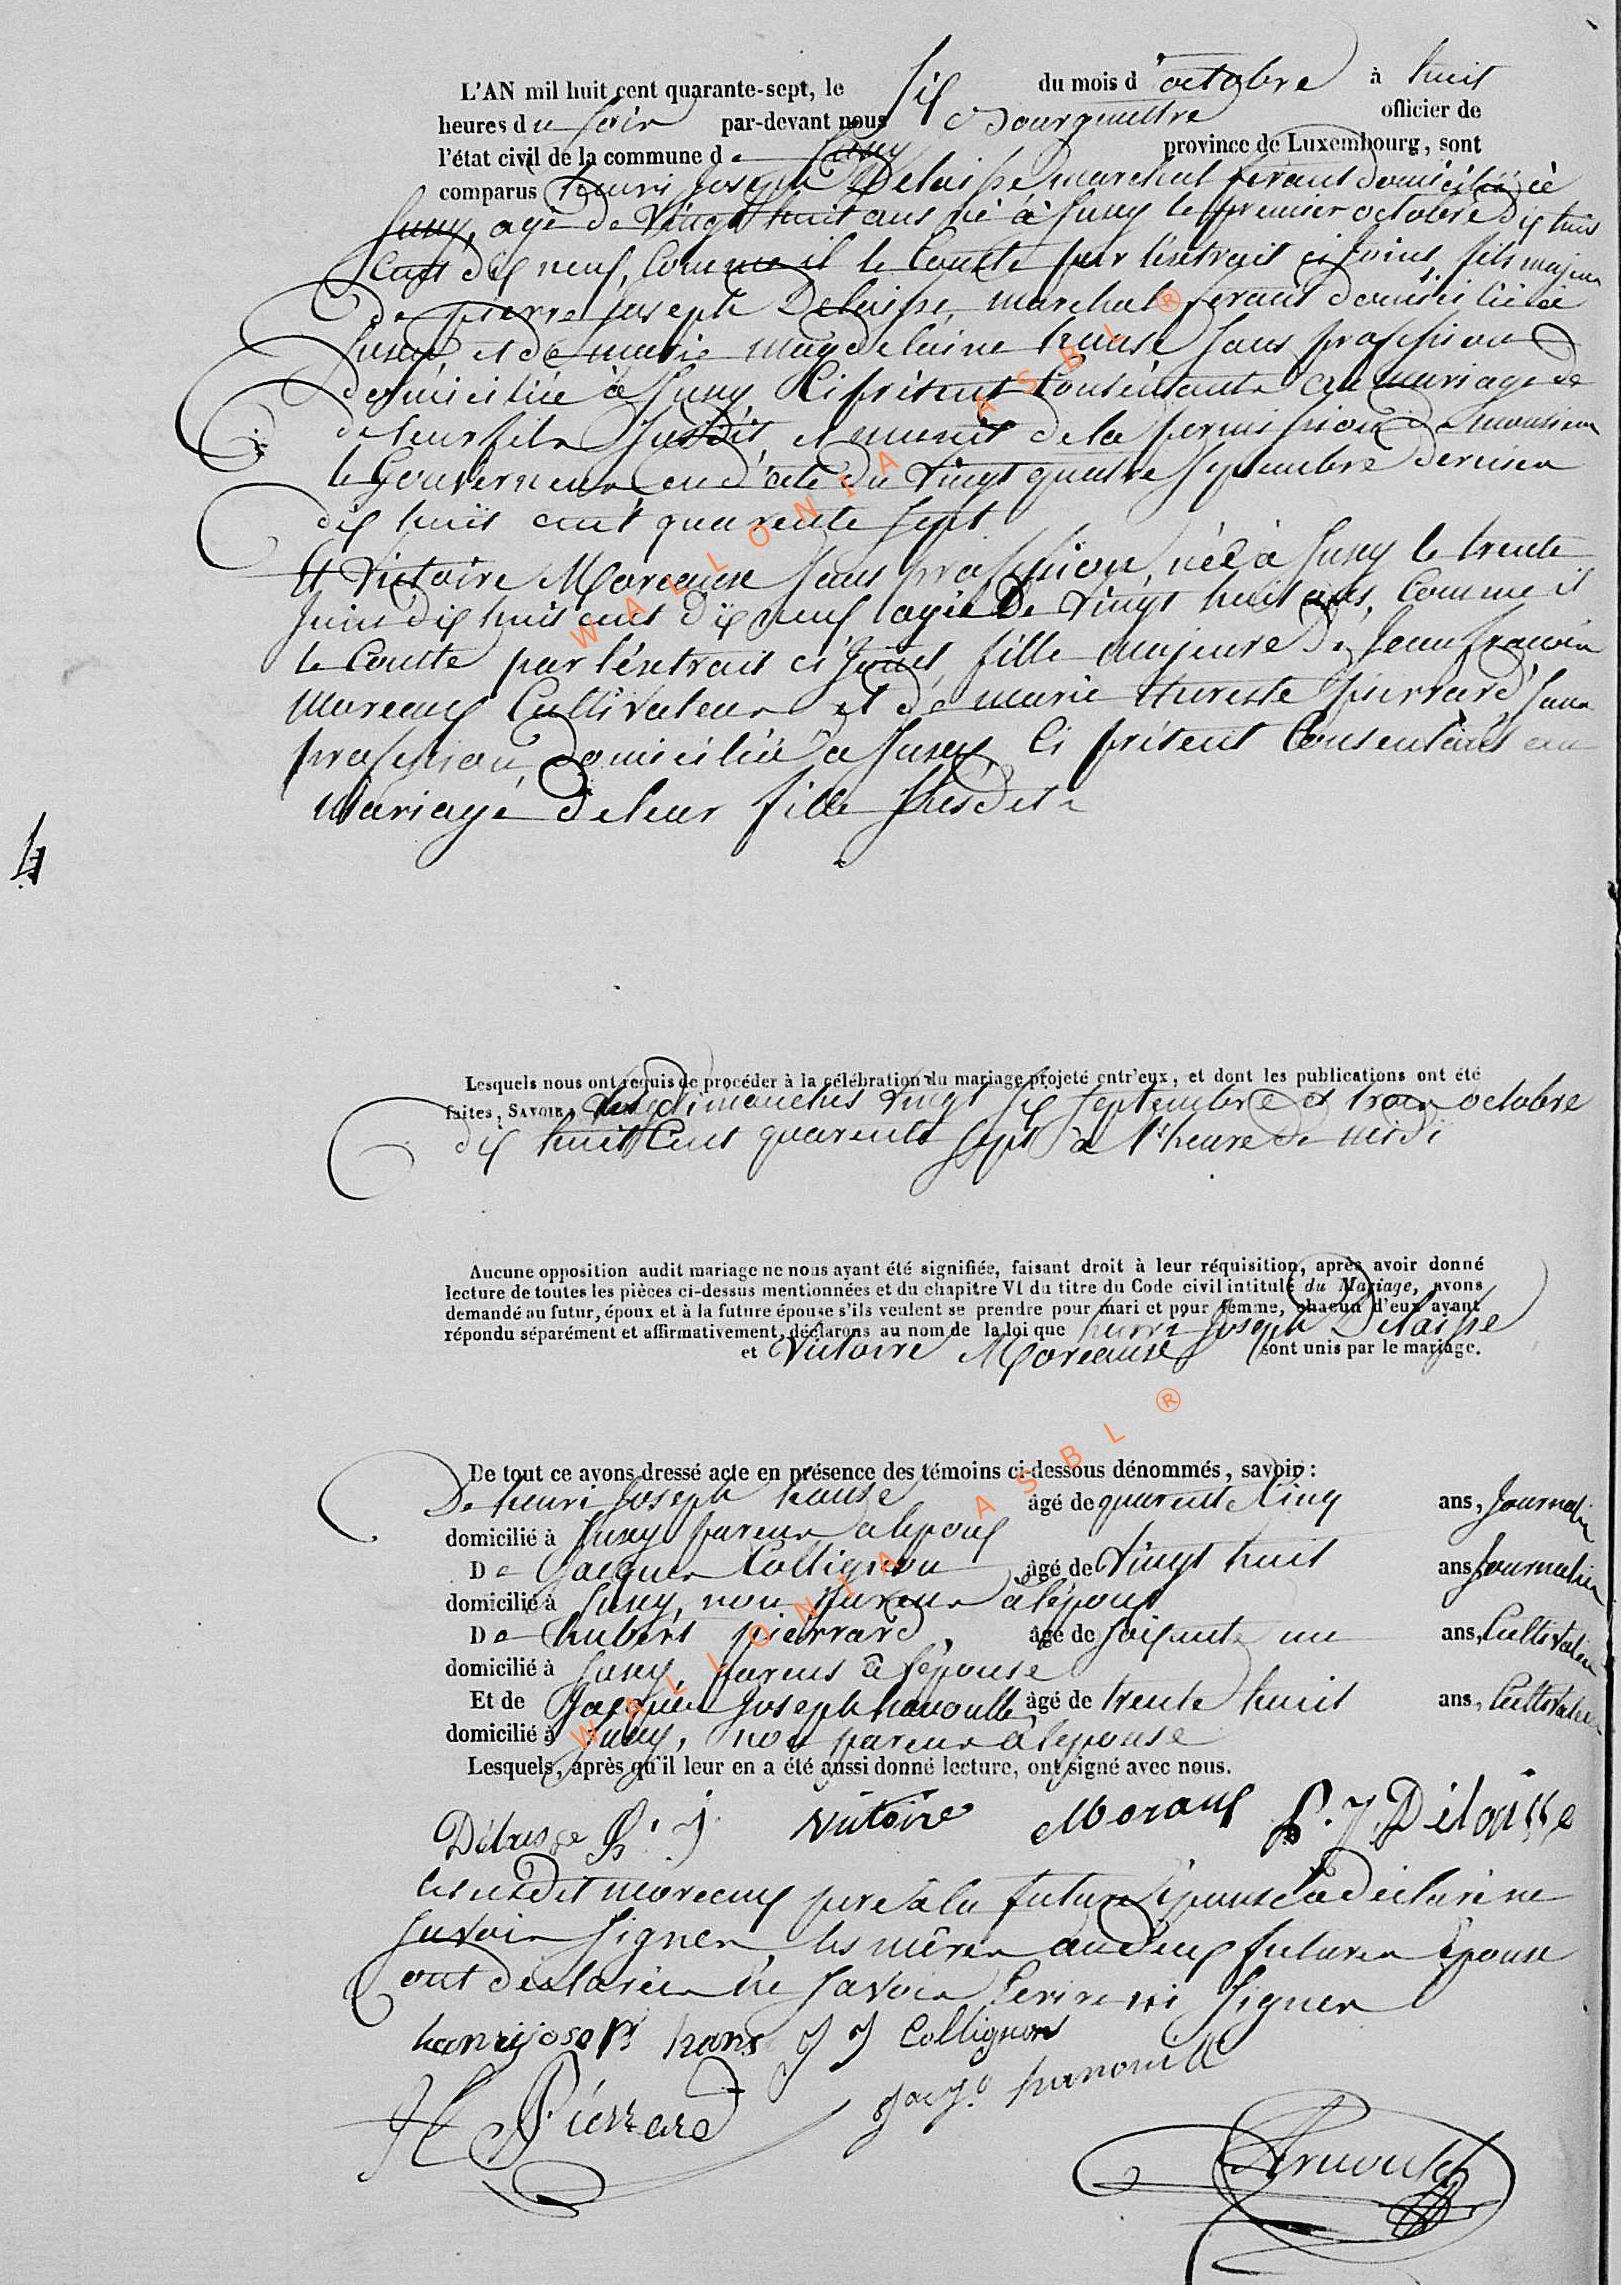 L'AN mil huit cent quarante-sept, le six du mois d'octobre à huit
heures du soir par-devant nous Bourguettre officier de
l'état civil de la commune de Suxy province de Luxembourg, sont
comparus henri Joseph Delaisse marchal ferant domicilié à
Suxy, agé de vingt huit ans né à Suxy le premier octobre dix huit
cent dix neuf, Comme il le Conste par l'éxtrait ci joint, fils majeur
de pierre Joseph Delaisse, marchal ferant domicilié à
Suxy et de marie magdelaine hanse sans profession
domiciliée à Suxy Ci présent Consentant au mariage de
de leur fils susdit, et munit de la permission de monsieur
le Gouverneur en date du vingt quatre septembre dernier
dix huit cent quarente sept
Et Victoire Moreaux sans profession, née à Suxy le trente
Juin dix huit cent dix neuf agée De vingt huit ans, Comme il
le Conste par l'éxtrait ci Joint, fille majeure de Jean francois
Moreaux Cultivateur et de marie thereste pierrard sans
profession, domiciliée à Suxy Ci présent Consentant au
Mariage de leur fille susdite
4
Lesquels nous ont requis de procéder à la célébration du mariage projeté entr'eux, et dont les publications ont été
faites, SAVOIR, les dimanches vingt six septembre et trois octobre
dix huit Cent quarente sept à l'heure de midi
Aucune opposition audit mariage ne nous ayant été signifiée, faisant droit à leur réquisition, après avoir donné
lecture de toutes les pièces ci-dessus mentionnées et du chapitre VI du titre du Code civil intitulé du Mariage, avons
demandé au futur, époux et à la future épouse s'ils veulent se prendre pour mari et pour femme, chacun d'eux ayant
répondu séparément et affirmativement, déclarons au nom de la loi que henri Joseph Delaisse
et Victoire Moreause sont unis par le mariage.
De tout ce avons dressé acte en présence des témoins ci-dessous dénommés, savoir :
De henri Joseph hanse âgé de quarente Cinq ans, Journalier
domicilié à Suxy parens a lepoux
De Jacques Collignon âgé de vingt huit ans Journalier
domicilié à Suxy, non parens à lépoux
De hubert pierrard, âgé de soixante un ans, Cultivateur
domicilié à Suxy, parens à l'épouse
Et de Jacques Joseph hanoulle âgé de trente huit ans, Cultivateur
domicilié à Suxy, non parens à lepouse
Lesquels, après qu'il leur en a été aussi donné lecture, ont signé avec nous.
Délaisse h. j. Victoire Moraux P. J. Délaisse
le susdit moreaux pere à la future épouse a déclaré ne
savoir signer, les mères au deux futures épouse
ont déclarées ne savoir Cerire ni signer
hanrijoseph hans J J Collignon
H Piérrard Jacq. hanouill